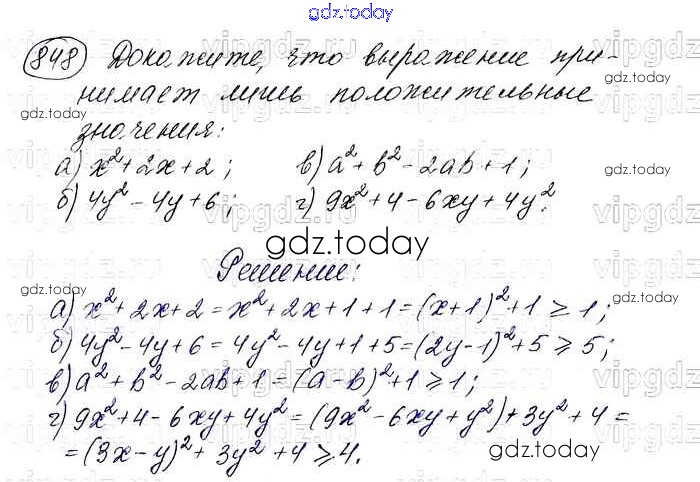 gdz.today
848 Докажите, что выражение при-
нимает лишь положительные
значения:
а) x² + 2x + 2; в) a² + b² - 2ab + 1;
б) 4y² - 4y + 6; г) 9x² + 4 - 6xy + 4y².
gdz.today
Решение:
а) x² + 2x + 2 = x² + 2x + 1 + 1 = (x + 1)² + 1 ≥ 1;
б) 4y² - 4y + 6 = 4y² - 4y + 1 + 5 = (2y - 1)² + 5 ≥ 5;
в) a² + b² - 2ab + 1 = (a - b)² + 1 ≥ 1;
г) 9x² + 4 - 6xy + 4y² = (9x² - 6xy + y²) + 3y² + 4 =
= (3x - y)² + 3y² + 4 ≥ 4.
gdz.today